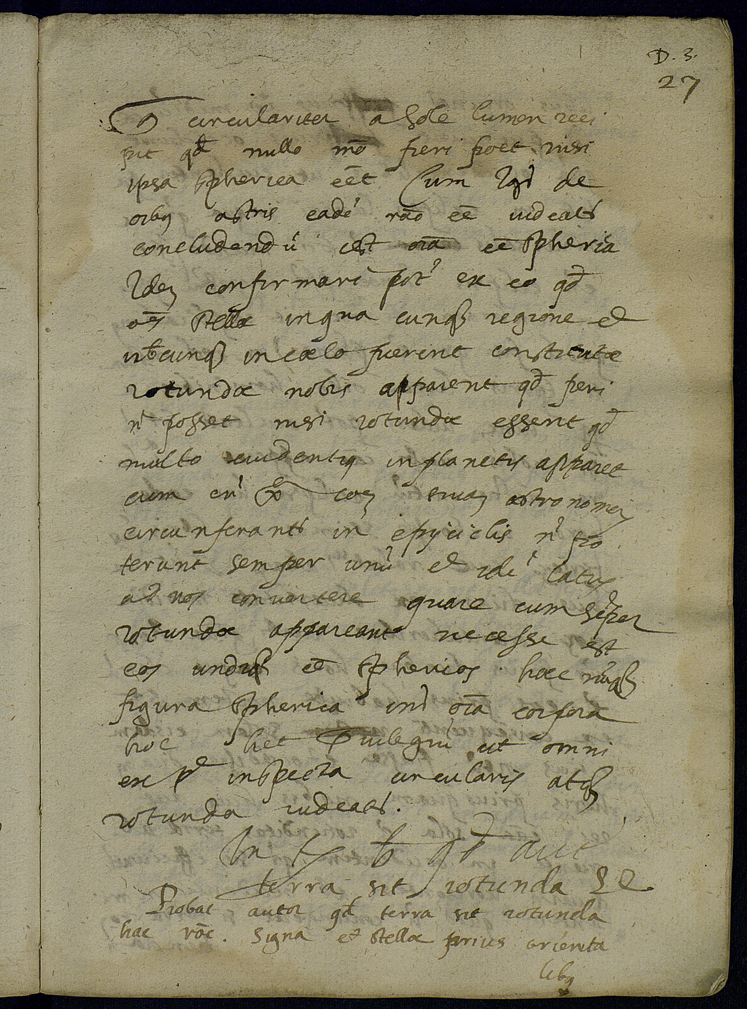 D. 3.
27
circulariter a sole lumen reci
pit qd nullo mō fieri poēt nisi
ipsa spherica eēt Cum igr de
oibꝫ astris eadē rāo eē videatr
concludendū est oīa eē spheria
Idē confirmari pot ex eo qd
oēs stellæ in qua cunqꝫ regione et
ubicunqꝫ in cœlo fuerint constitutæ
rotundæ nobis apparent qd fieri
nō posset nisi rotundæ essent qd
multo evidentiꝰ in planetis apparet
cum enī astronomiæ
circunferantr in epyciclis nō
terunt semper unū et idē latus
ad nos convertere quare cum sēper
rotundæ appareant necesse est
eos undiqꝫ eē sphericos. hæc
figura spherica int oīa corpora
hoc het Privilegiū ut omni
ex pte inspecta circularis atqꝫ
rotunda videatr.
qd aut
terra sit rotunda
Probat autor qd terra sit rotunda
hac rōe. Signa et stellæ prius orienta
libꝫ